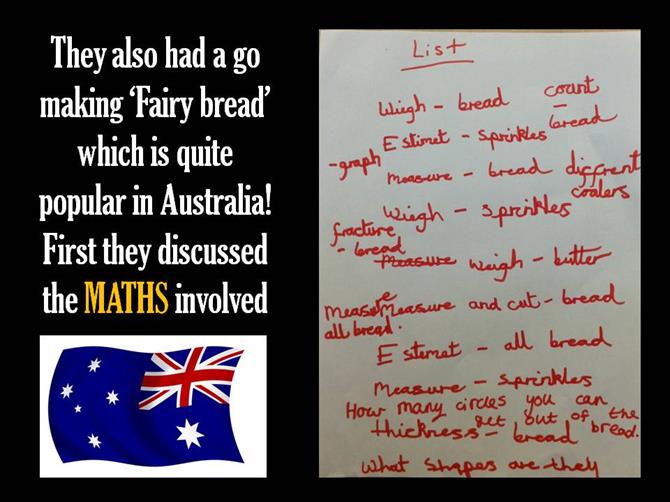 They also had a go
making ‘Fairy bread’
which is quite
popular in Australia!
First they discussed
the MATHS involved
List
Wiegh - bread
count - bread
Estimet - sprinkles
- graph
measure - bread
different coalers
Wiegh - sprinkles
fracture - bread
Measure weigh - butter
Measure all bread.
Measure and cut - bread
Estemet - all bread
Measure - sprinkles
How many circles you can
get out of the bread.
thickness - bread
What shapes are they